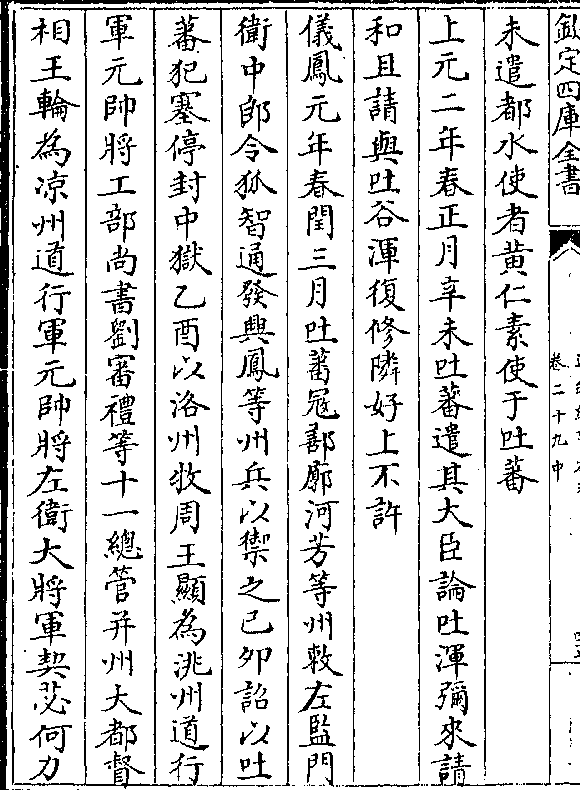 欽定四庫全書
卷二十九中
未遣都水使者黃仁素使于吐蕃
上元二年春正月辛未吐蕃遣其大臣論吐渾彌來請
和且請與吐谷渾復修隣好上不許
儀鳳元年春閏三月吐蕃冦鄯廓河芳等州敕左監門
衛中郎令狐智通發興鳳等州兵以禦之己夘詔以吐
蕃犯塞停封中嶽乙酉以洛州牧周王顯為洮州道行
軍元帥將工部尚書劉審禮等十一總管并州大都督
相王輪為凉州道行軍元帥將左衛大將軍契苾何力